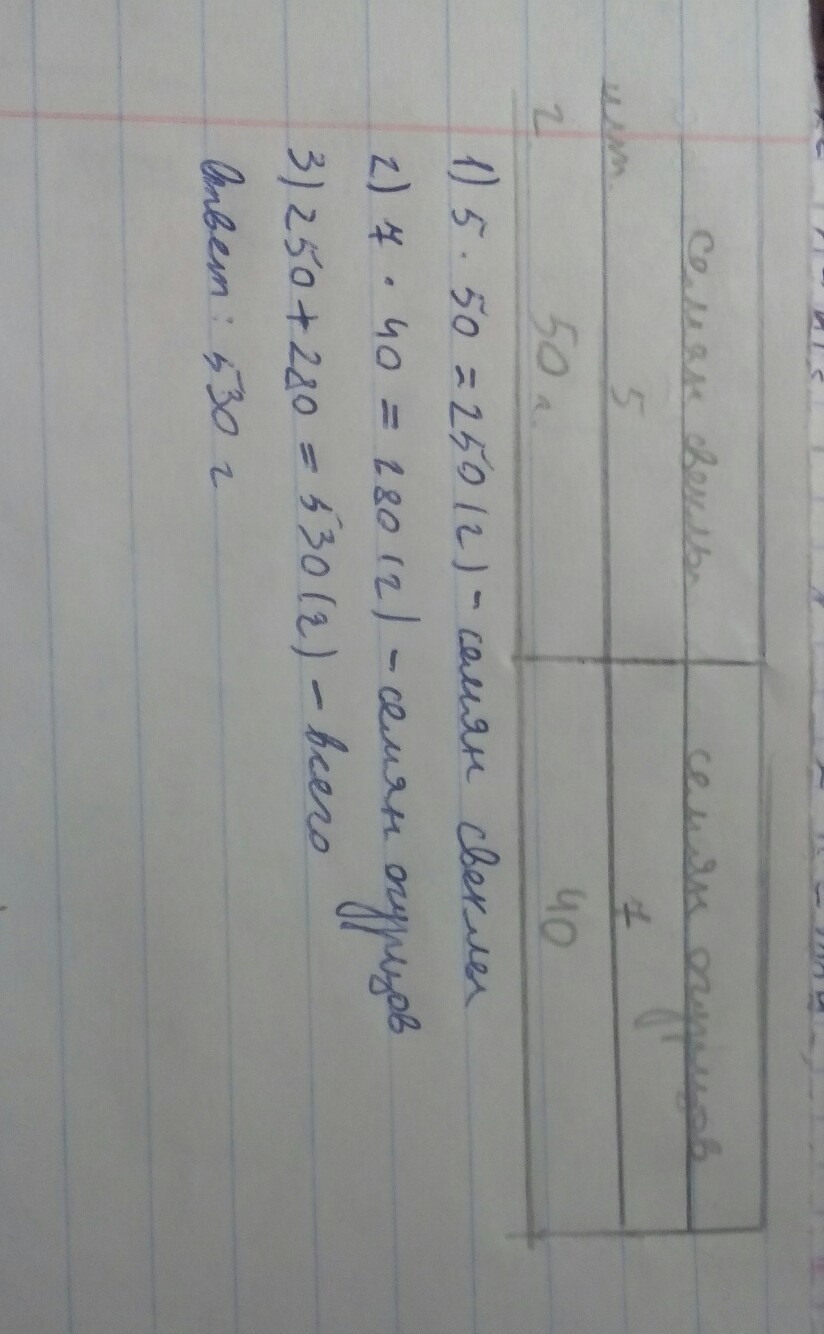 семян свеклы семян огурцов
шт. 5 7
г. 50 г. 40
1) 5 · 50 = 250 (г) - семян свеклы
2) 7 · 40 = 280 (г) - семян огурцов
3) 250 + 280 = 530 (г) - всего
Ответ: 530 г